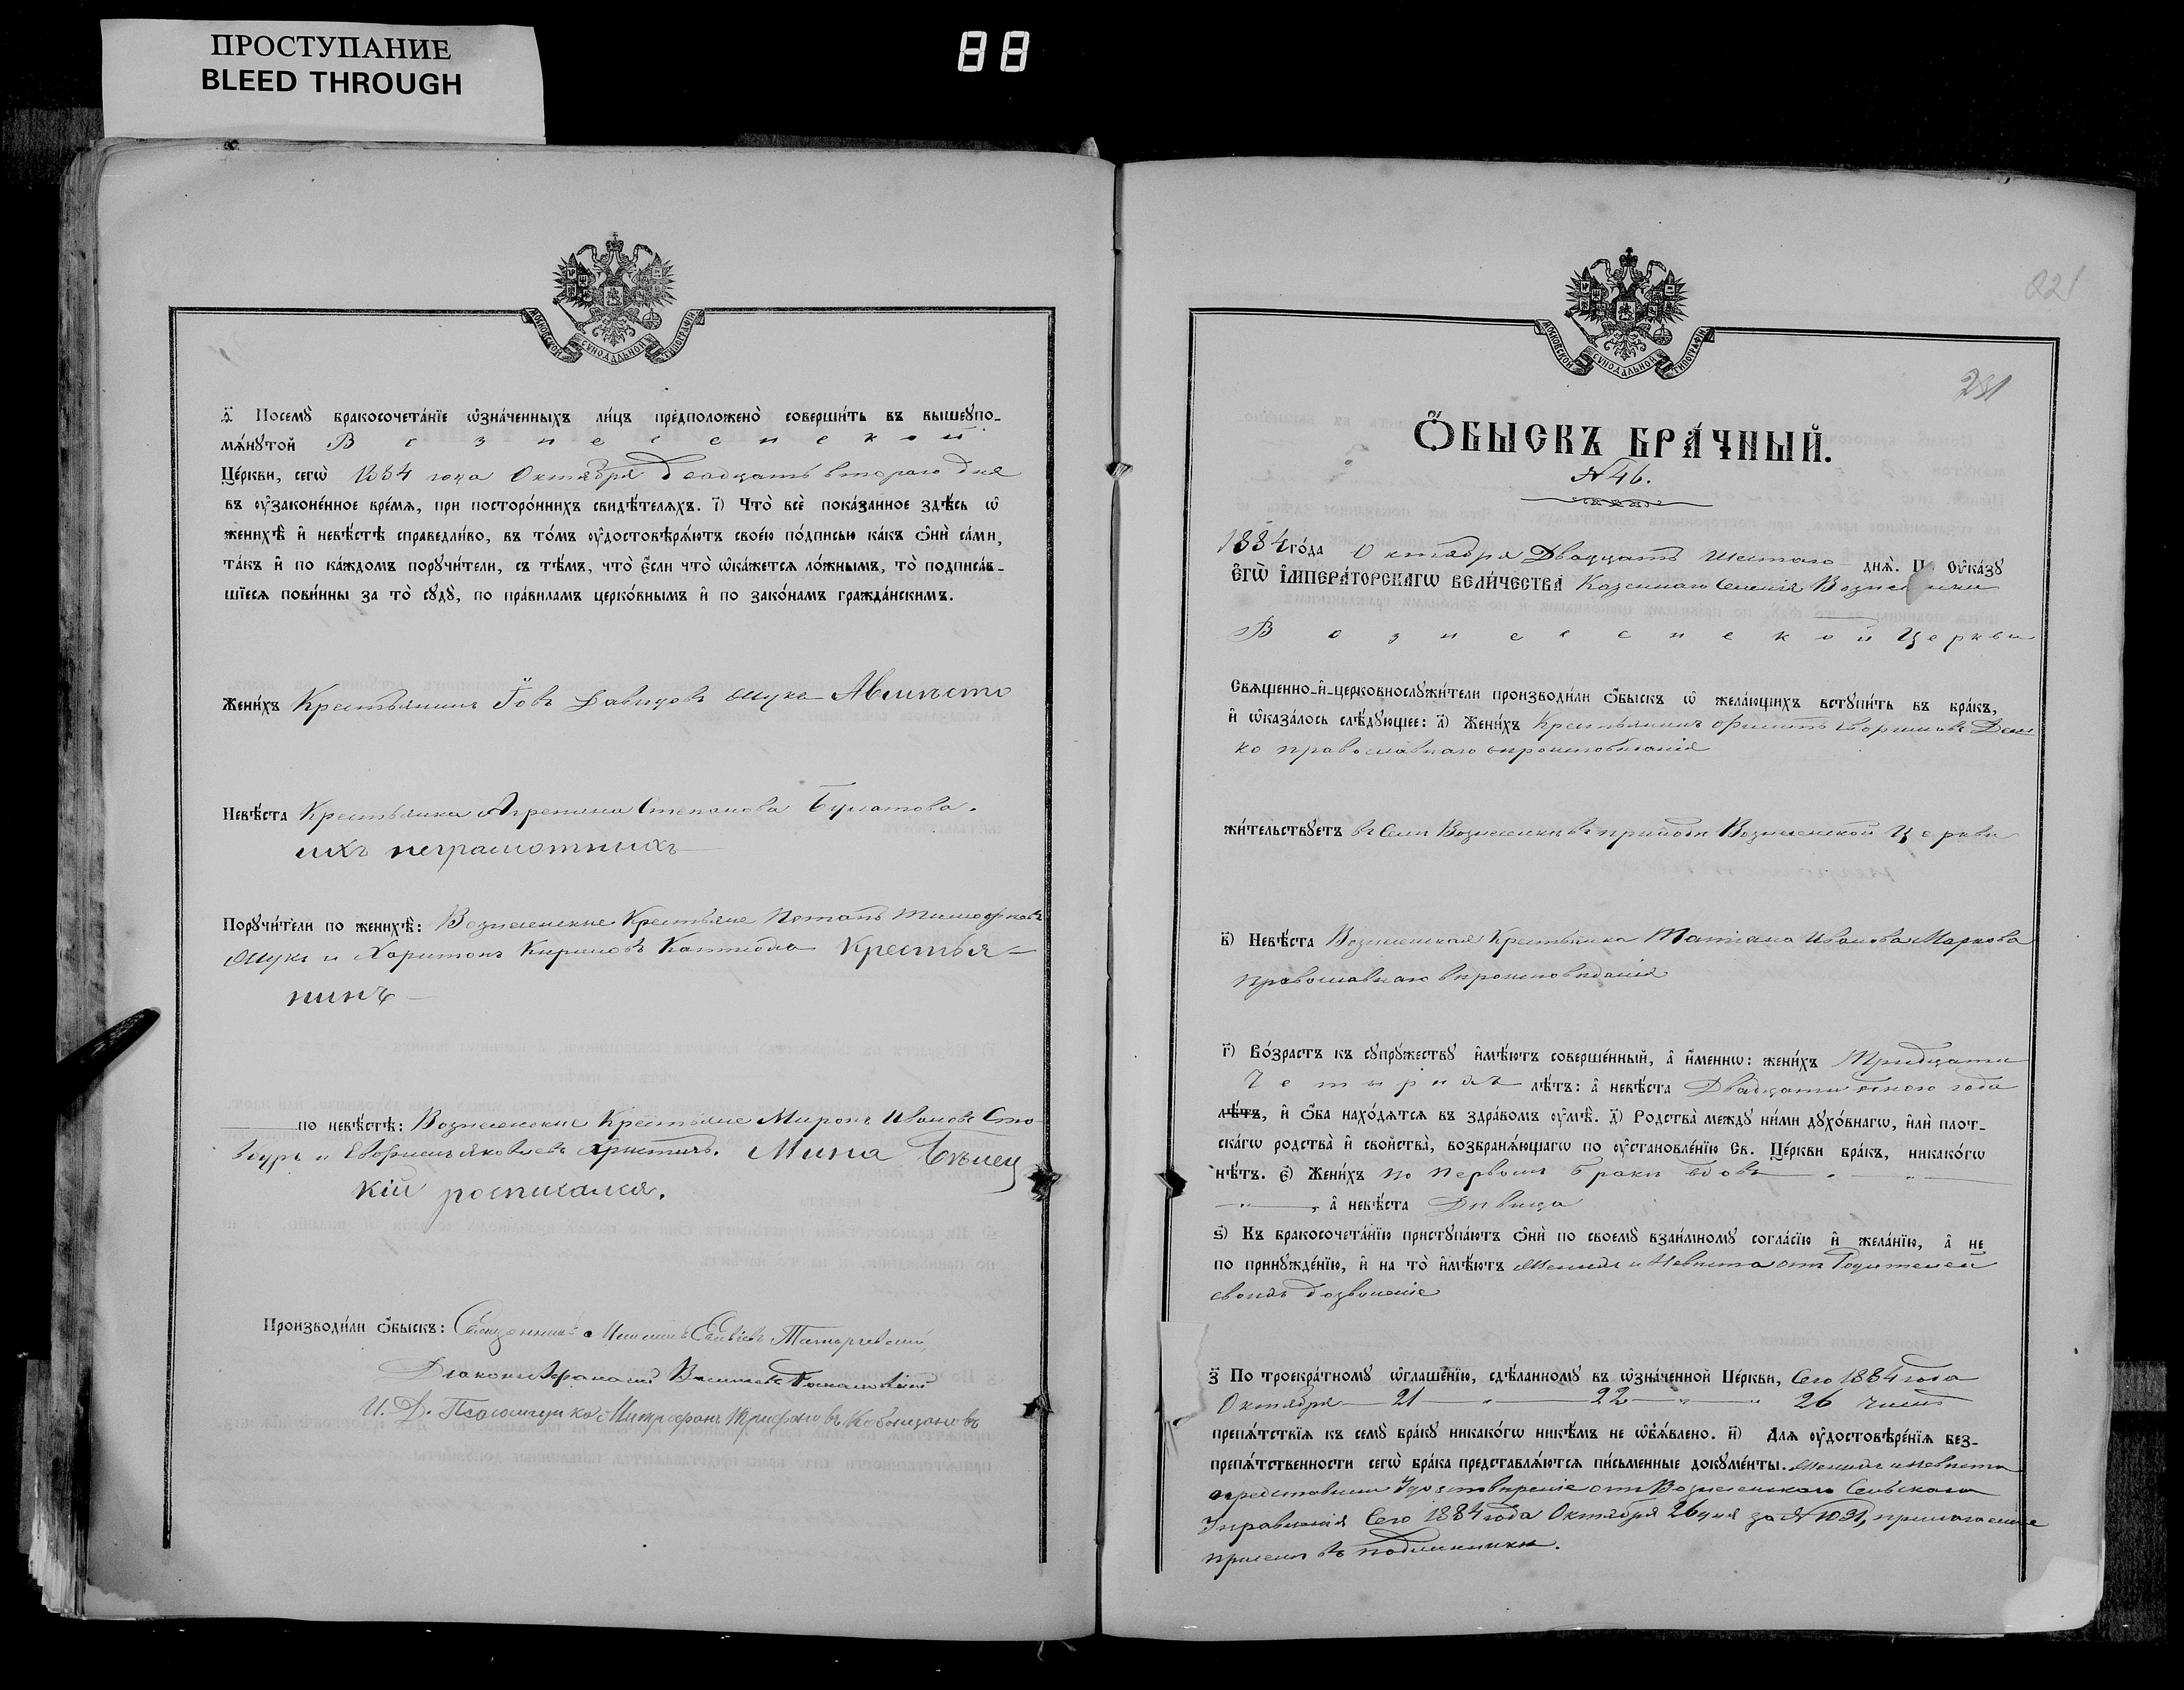 ПРОСТУПАНИЕ
BLEED THROUGH
88
МОСКОВСКОЙ СѴНОДАЛЬНОЙ ТИПОГРАФІИ
Посемꙋ̀ бракосочета́нїе ѡ҆зна́ченныхъ ли́цъ предположено̀ соверши́ть въ вышеꙋпо-
мѧ́нꙋтой Вознесенской
Це́ркви, сегѡ̀ 1884 года Октября двадцать втораго дня
въ ᲂу҆законе́нное вре́мѧ, при посторо́ннихъ свидѣ́телѧхъ. і҃) Что̀ всѐ пока́занное здѣ́сь ѡ҆
женихѣ̀ и҆ невѣ́стѣ справедли́во, въ то́мъ ᲂу҆достовѣрѧ́ютъ свое́ю по́дписью ка́къ ѻ҆нѝ са́ми,
та́къ и҆ по ка́ждомъ порꙋчи́тели, съ тѣ́мъ, что̀ є҆́сли что̀ ѡ҆ка́жетсѧ ло́жнымъ, то̀ подписа́в-
шїесѧ пови́нны за то̀ сꙋдꙋ̀, по пра́виламъ церко́внымъ и҆ по зако́намъ гражда́нскимъ.
Жени́хъ Крестьянинъ Іовъ Давидовъ
Невѣ́ста Крестьянка Агрепина Степанова Булатова.
ихъ неграмотныхъ
Порꙋчи́тели по женихѣ̀: Вознесенские Крестьяне Потапъ Тимофеевъ
и Харитонъ Кириловъ Крестья-
нинъ
по невѣ́стѣ: Вознесенские Крестьяне Миронъ Ивановъ
и Яковлевъ Мина Бѣлец
кій росписался.
Производи́ли ѻ҆́быскъ: Священникъ
Діаконъ
И. Д. Псаломщика Митрофанъ Трифоновъ
221
231
МОСКОВСКОЙ СѴНОДАЛЬНОЙ ТИПОГРАФІИ
Ѻ҆́БЫСКЪ БРА́ЧНЫЙ.
№ 46.
1884 го́да Октября Двадцать Шестаго днѧ̀. По ᲂу҆ка́зꙋ
Е҆ГѠ̀ І҆МПЕРА́ТОРСКАГѠ ВЕЛИ́ЧЕСТВА Казеннаго Селенія Вознесенки
Вознесенской Церкви
Свѧще́нно-и҆-церковнослꙋжи́тели производи́ли ѻ҆́быскъ ѡ҆ жела́ющихъ встꙋпи́ть въ бра́къ,
и҆ ѡ҆каза́лось слѣ́дꙋющее: а҃) Жени́хъ Крестьянинъ Филипъ
ко православнаго вѣроисповѣданія
жи́тельствꙋетъ въ Селѣ Вознесенкѣ въ приходѣ Вознесенской Церкви
в҃) Невѣ́ста Вознесенская Крестьянка Татіана Иванова Маркова
православнаго вѣроисповѣданія
г҃) Во́зрастъ къ сꙋпрꙋ́жествꙋ и҆мѣ́ютъ соверше́нный, а҆ и҆́меннѡ: жени́хъ Тридцати
Четырехъ лѣ́тъ: а҆ невѣ́ста Двадцати одного года
лѣ́тъ, и҆ ѻ҆́ба нахо́дѧтсѧ въ здра́вомъ ᲂу҆мѣ̀. д҃) Родства̀ междꙋ ни́ми дꙋхо́внагѡ, и҆лѝ плот-
ска́гѡ родства̀ и҆ свойства̀, возбранѧ́ющагѡ по ᲂу҆становле́нїю Св. Це́ркви бра́къ, никако́гѡ
нѣ́тъ. є҃) Жени́хъ по первомъ бракѣ вдовъ
, а҆ невѣ́ста Дѣвица
ѕ҃) Къ бракосочета́нїю пристꙋпа́ютъ ѻ҆нѝ по своемꙋ̀ взаи́мномꙋ согла́сїю и҆ жела́нїю, а҆ не
по принꙋжде́нїю, и҆ на то̀ и҆мѣ́ютъ Женихъ и Невѣста отъ Родителей
своихъ дозволеніе
з҃) По троекра́тномꙋ ѡ҆глаше́нїю, сдѣ́ланномꙋ въ ѡ҆зна́ченной Це́ркви, Сего 1884 года
Октября 21 " 22 " 26 числъ
препѧ́тствїѧ къ семꙋ̀ бра́кꙋ никако́гѡ никѣ́мъ не ѡ҆б̾ѧ́влено. и҃) Длѧ ᲂу҆достовѣре́нїѧ без-
препѧ́тственности сегѡ̀ бра́ка представлѧ́ютсѧ пи́сьменные докꙋме́нты. Женихъ и Невѣста
представили Удостовѣреніе отъ Вознесенскаго Сельскаго
Управленія Сего 1884 года Октября 26 дня за № 1031,
при семъ въ подлинникѣ.